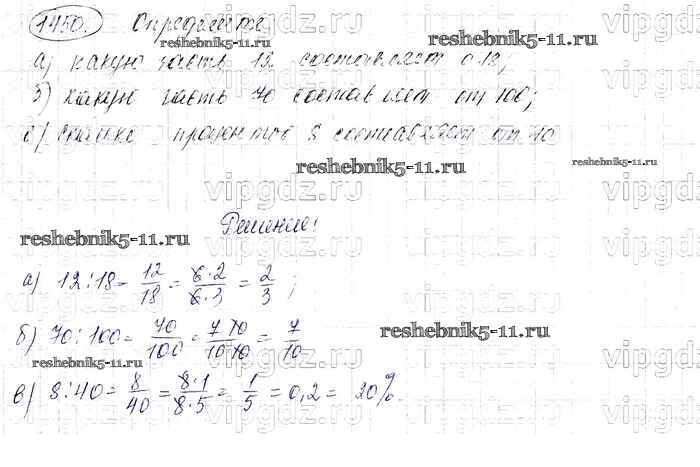 1450. Определите
а) какую часть 12 составляет от 18;
б) какую часть 70 составляет от 100;
в) сколько процентов 8 составляет от 40
Решение:
а) 12:18 = 12/18 = 6·2/6·3 = 2/3;
б) 70:100 = 70/100 = 7·10/10·10 = 7/10
в) 8:40 = 8/40 = 8·1/8·5 = 1/5 = 0,2 = 20%.
reshebnik5-11.ru
reshebnik5-11.ru
reshebnik5-11.ru
reshebnik5-11.ru
reshebnik5-11.ru
reshebnik5-11.ru
reshebnik5-11.ru
vipgdz.ru